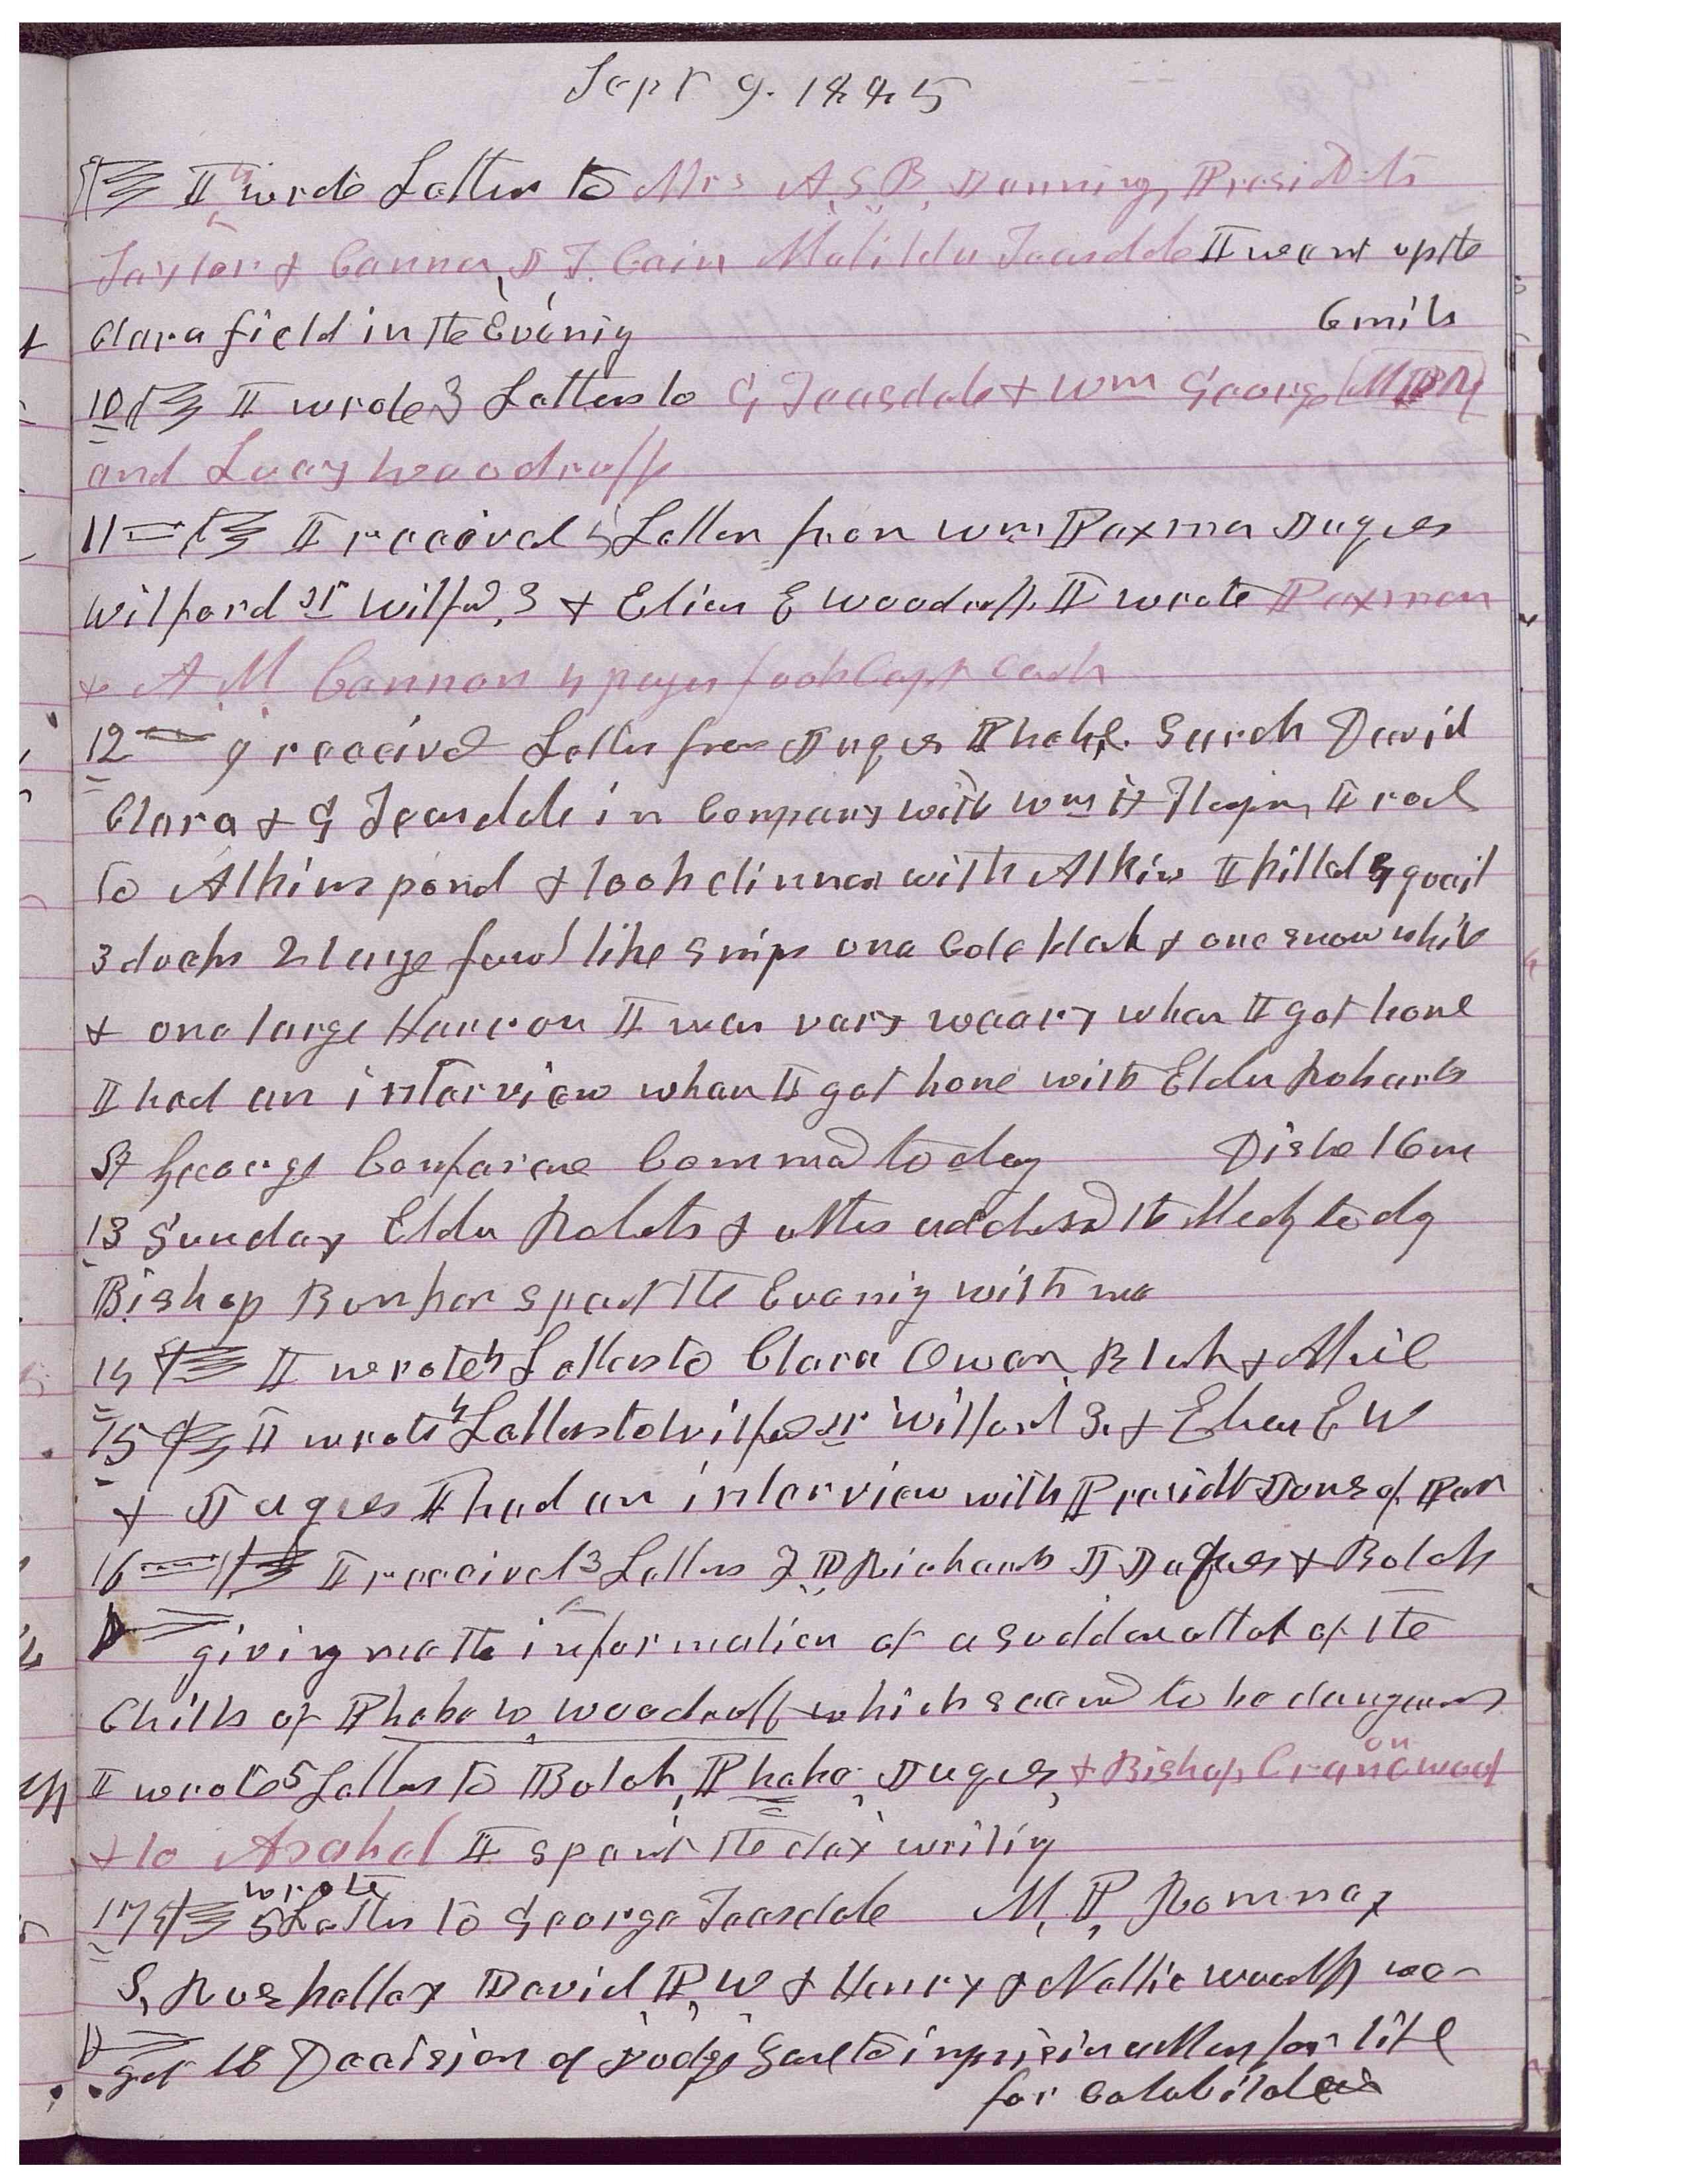 Sept 9. 1885
I wrote 4 Letters to Mrs A. S. B. Dunning, Presidets
Taylor & Cannon, D J. Cain Matilda Teasdale I went up the
Clara field in the Evenig 6 mils
10 I wrote 3 Letters to G Teasdale & Wm George
and Lucy Woodruff
11 I received 5 Letters from Wm Paxman Jaques
Wilford Jr Wilfd, 3 & Elias E Woodruff. I wrote Paxman
& A. M. Cannon 4 pages foolscap Each
12 I received Letters from Jaques Phebe. Sarah David
Clara & G Teasdale in Company with Wm H Thompson I rode
to Atkins pond & took dinner with Atkin I killed quail
3 ducks 2 large fowl like Snips one Cole black & one snow white
& one large Hareon I was very weary when I got home
I had an interview when I got home with Elder Roberts
St George Conference Commed to day Disto 16 m
13 Sunday Elder Robets & others addressed the Meetg to dy
Bishop Bunker spent the Evenig with me
14 I wrote 4 Letters to Clara Owen, Bleak &
15 I wrote 4 Letters to Wilfd Jr Wilford 3. & Elias E W
& Jaques I had an interview with Presidt
16 I received 3 Letters F D Richards J Jaques & Bulah
giving me the information of a sudden attak of the
Chills of Phebe W Woodruff which seemd to be dangerous
I wrote 5 Letters to Bulah, Phebe, Jaques, & Bishop
& to Asahel I spent the day writing
17 wrote 5 Letters to George Teasdale M, P, Romney
S, Roskelley David P, W & Henry & Nellie Woodff we
get the Decision of Judge to imprisin a Man for life
for